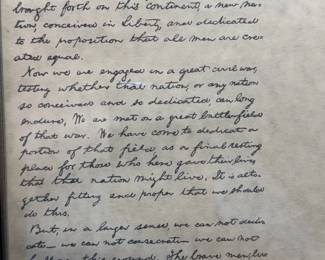 brought forth on this continent, a new na-
tion, conceived in Liberty, and dedicated
to the proposition that all men are cre-
ated equal.
Now we are engaged in a great civil war,
testing whether that nation, or any nation
so conceived and so dedicated, can long
endure. We are met on a great battlefield
of that war. We have come to dedicate a
portion of that field, as a final resting
place for those who here gave their lives
that that nation might live. It is alto-
gether fitting and proper that we should
do this.
But, in a larger sense, we can not dedi-
cate— we can not consecrate— we can not
this ground. The brave men,